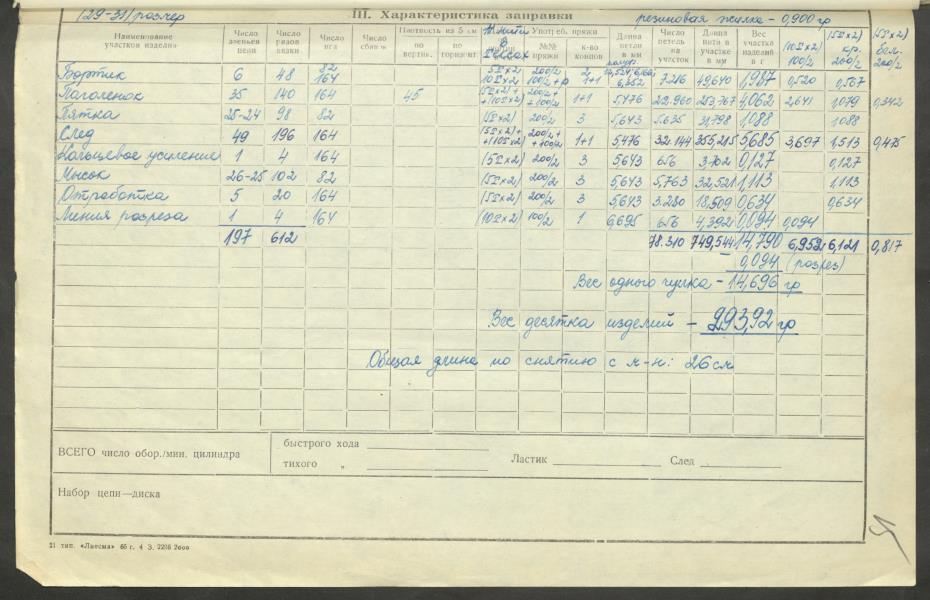 (29-31) размер III. Характеристика заправки резиновая жилка - 0,900 гр
Наименование участков изделия Число звеньев цепи Число рядов вязки Число игл Число сбавок Плотность из 5 см по вертик. по горизонт. № нити в тексах Употреб. пряжи №№ пряжи к-во концов Длина петли в мм Число петель на участок Длина нити в участке в мм Вес участка изделия в г (10Тх2) 100/2 (15Тх2) кр. 200/2 (15Тх2) бел. 200/2
Бортик 6 48 82 164 5Тх2 10Тх2 200/2 100/2+р 2 1+1 6,352 7.216 49,640 1,987 0,520 0,567
Паголенок 35 140 164 45 (15Тх2)+ +(10Тх2) 200/2+ +100/2 1+1 5,476 22.960 253,767 4,062 2,641 1,079 0,342
Пятка 25-24 98 82 15Тх2) 200/2 3 5,643 5.635 31,798 1,088 1,088
След 49 196 164 (15Тх2)+ +(10Тх2) 200/2+ +100/2 1+1 5,476 32.144 355,215 5,685 3,697 1,513 0,475
Кольцевое усиление 1 4 164 (15Тх2) 200/2 3 5,643 656 3,702 0,127 0,127
Мысок 26-25 102 82 (15Тх2) 200/2 3 5,643 5,763 32,521 1,113 1,113
Отработка 5 20 164 (15Тх2) 200/2 3 5,643 3.280 18,509 0,634 0,634
Линия разреза 1 4 164 (10Тх2) 100/2 1 6,695 656 4,392 0,094 0,094
197 612 78.310 749,544 14,790 6,952 6,121 0,817
- 0,094 (разрез)
Вес одного чулка - 14,696 гр
Вес десятка изделий - 293,92 гр
Общая длина по снятию с м-н: 26 см
ВСЕГО число обор./мин. цилиндра быстрого хода
тихого „ Ластик След
Набор цепи—диска
21 тип. «Лиесма» 65 г. 4 З. 2216 2000